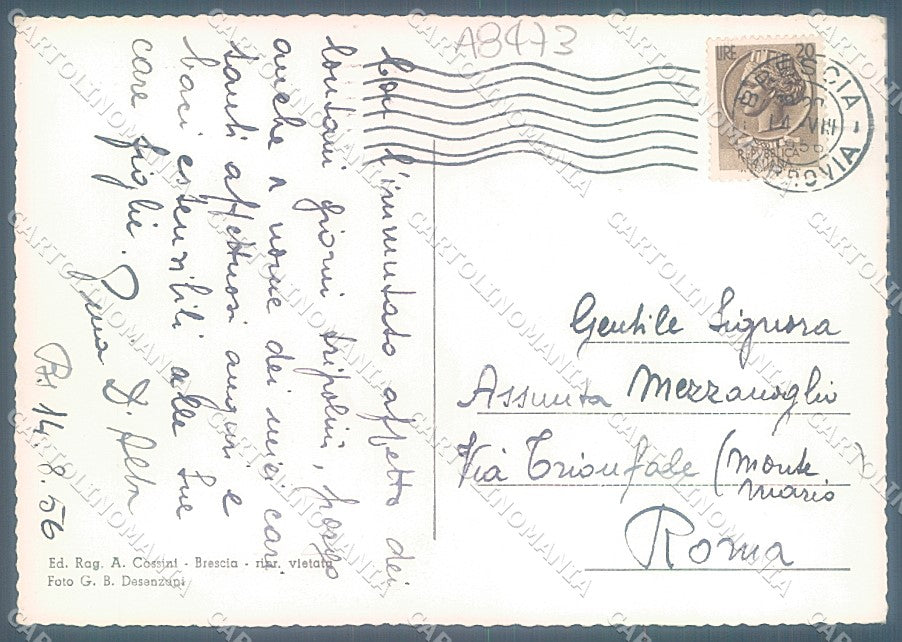 A8473
LIRE 20
BRESCIA
FERROVIA
14 VIII
Con l'immutato affetto dei
lontani giorni tripolini, porgo
anche a nome dei miei cari
tanti affettuosi auguri e
baci estensibili alle tue
care figlie.
D'Alba
14.8.56
Gentile Signora
Assunta Mezzanoglio
Via Trionfale (Monte
Mario
Roma
Ed. Rag. A. Cossini - Brescia - ripr. vietata
Foto G. B. Desenzani
CARTOLINOMANIA